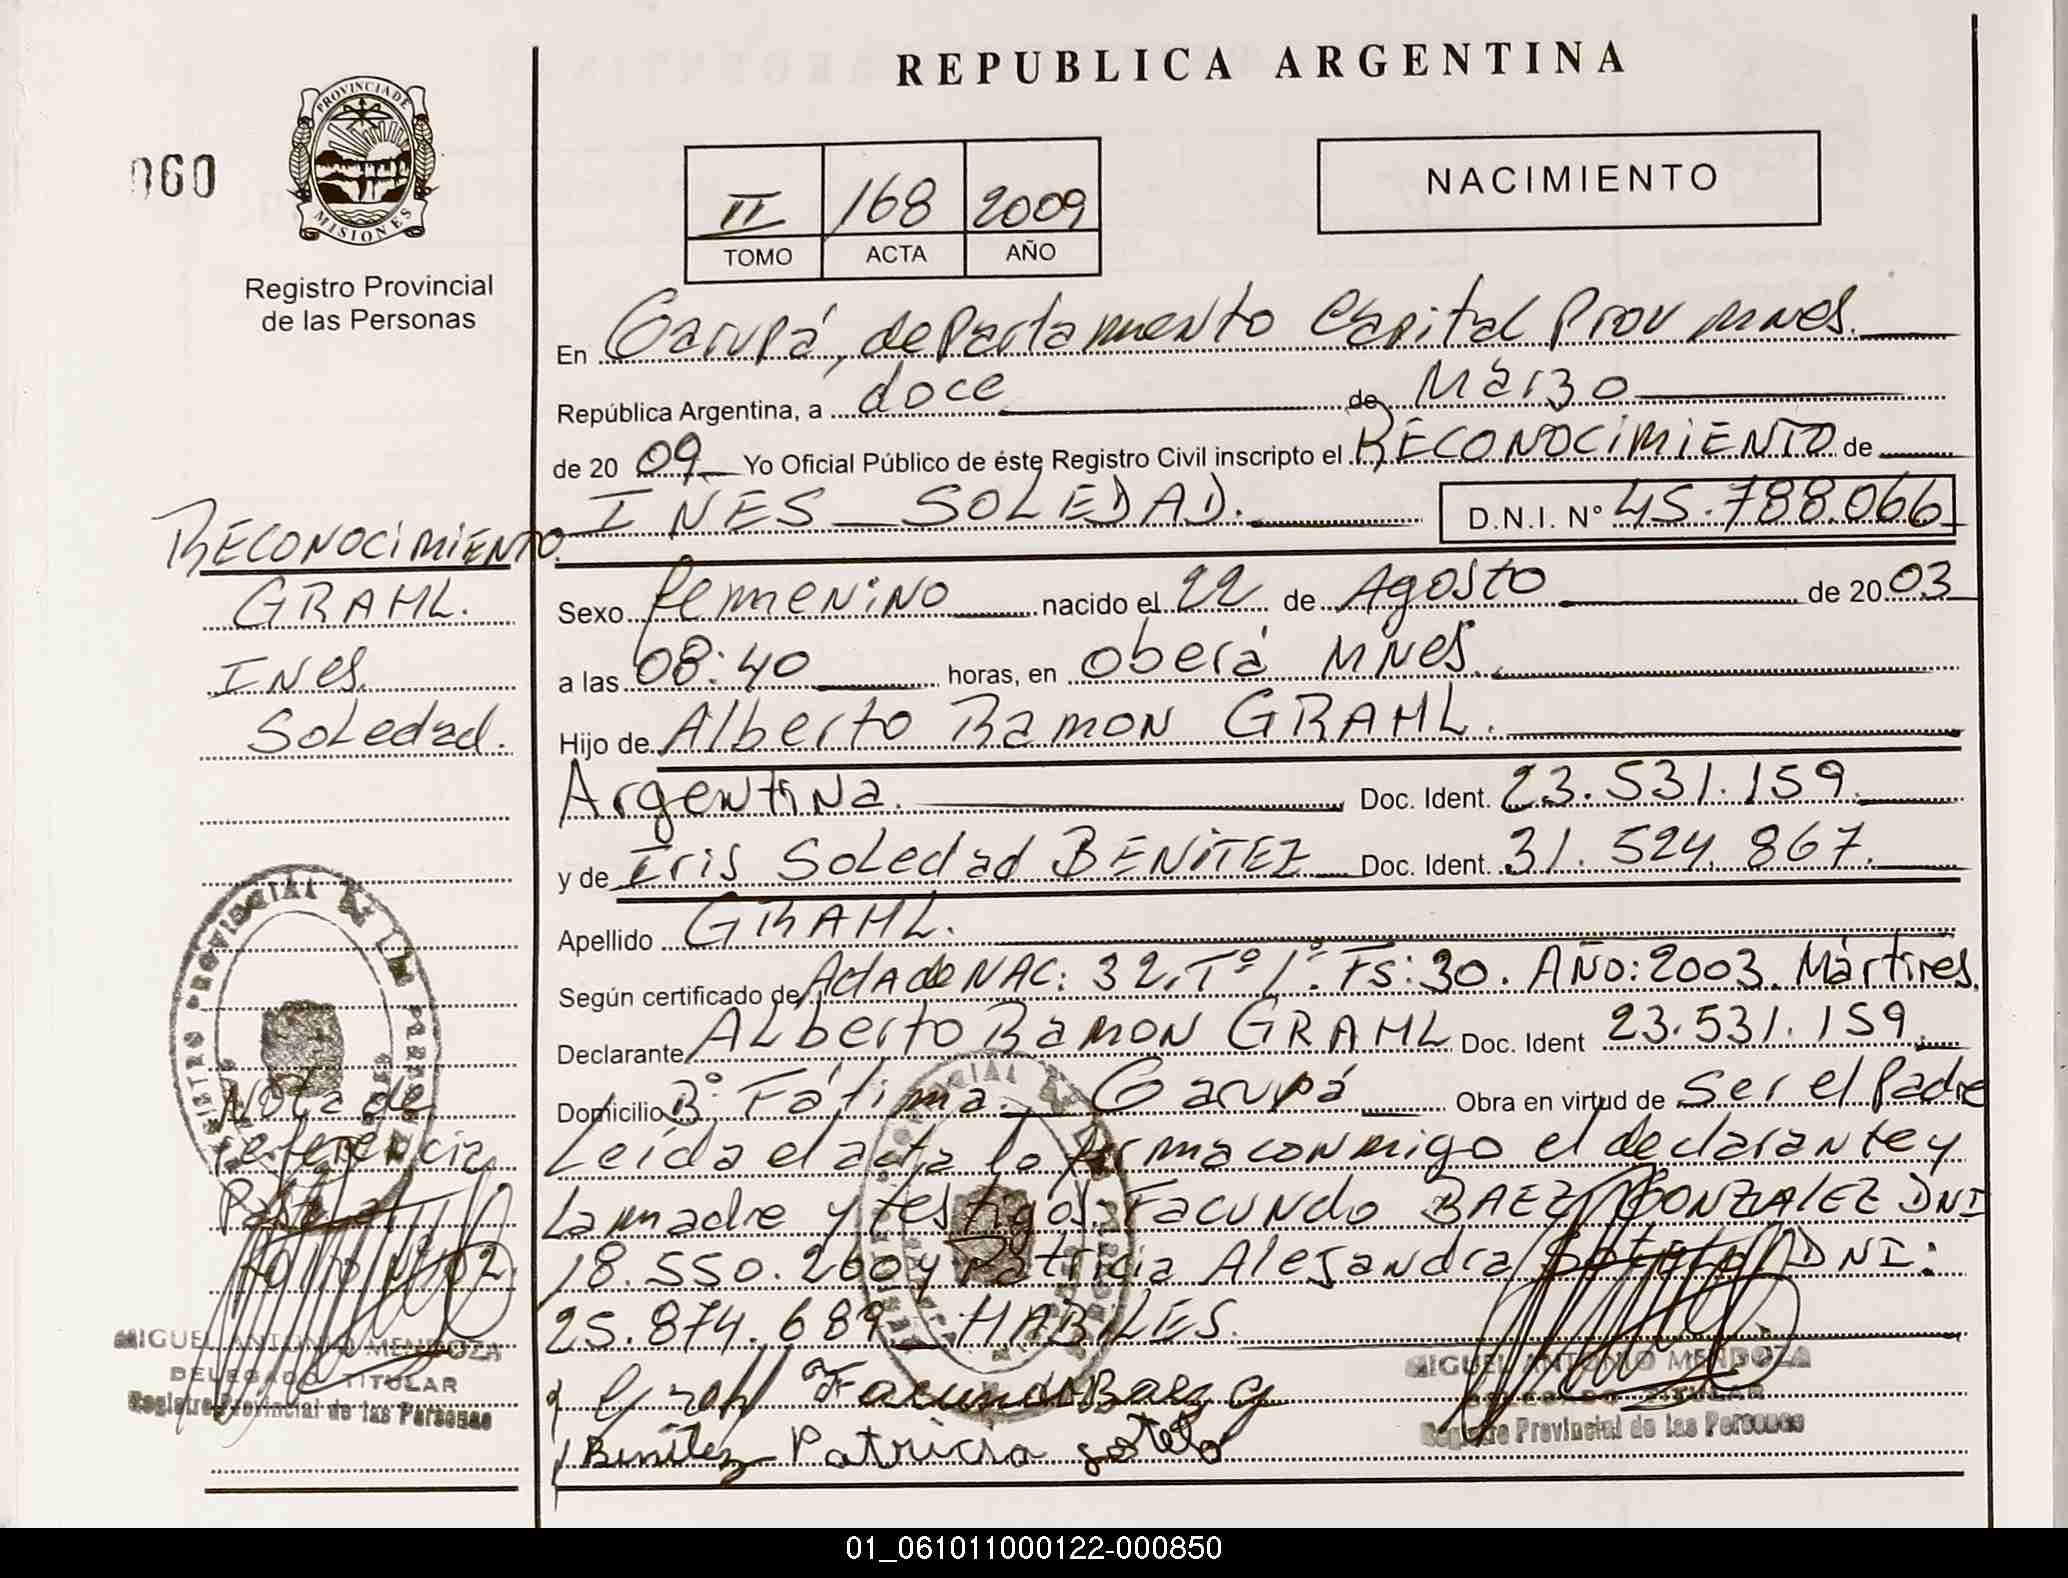 REPUBLICA ARGENTINA
060
PROVINCIA DE
MISIONES
Registro Provincial
de las Personas
NACIMIENTO
II 168 2009
TOMO ACTA AÑO
En Garupá, departamento Capital Prov mnes.
República Argentina, a doce de Marzo
de 2009 Yo Oficial Público de éste Registro Civil inscripto el RECONOCIMIENTO de
INES SOLEDAD. D.N.I. Nº 45.788.066
RECONOCIMIENTO.
GRAHL.
INes.
SoLedad.
Sexo femenino nacido el 22 de Agosto de 2003
a las 08:40 horas, en oberá mnes.
Hijo de Alberto Ramon GRAHL.
Argentina. Doc. Ident. 23.531.159.
y de Iris SoLedad BENITEZ Doc. Ident. 31.524.867.
Apellido GRAHL.
Según certificado de Acta de NAC: 32. Tº 1º. Fs: 30. AÑO: 2003. Mártires.
Declarante ALberto Ramon GRAHL Doc. Ident 23.531.159.
Domicilio Bº Fátima. Garupá Obra en virtud de ser el Padre
Leída el acta la firma conmigo el declarante y
La madre y testigos: Facundo BAEZ GONZALEZ DNI
18.550.260 y Patricia Alejandra Sotelo DNI:
25.874.689 HABILES.
Nota de
referencia
MIGUEL ANTONIO MENDOZA
DELEGADO TITULAR
Registro Provincial de las Personas
Facundo Baez G
Benitez Patricia Sotelo
MIGUEL ANTONIO MENDOZA
DELEGADO TITULAR
Registro Provincial de las Personas
01_061011000122-000850